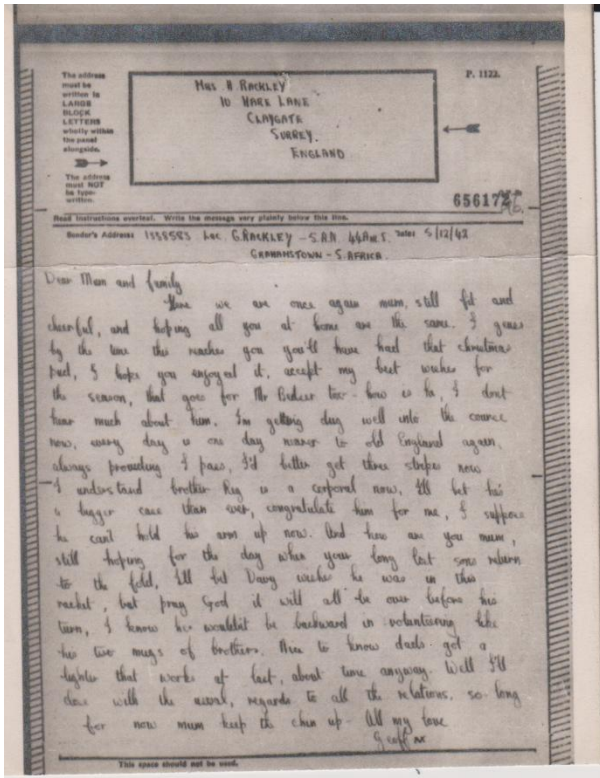 The address
must be
written in
LARGE
BLOCK
LETTERS
wholly within
the panel
alongside.
The address
must NOT
be type-
written.
MRS H. RACKLEY
10 HARE LANE
CLAYGATE
SURREY.
ENGLAND
P. 1122.
656172
Read instructions overleaf. Write the message very plainly below this line.
Sender's Address: 1338583 Lac. G. RACKLEY - S.A.A. 44A.W.T. Date: 5/12/42
GRAHAMSTOWN - S. AFRICA.
Dear Mum and family
Here we are once again mum, still fit and
cheerful, and hoping all you at home are the same. I guess
by the time this reaches you you'll have had that christmas
pud, I hope you enjoyed it, accept my best wishes for
the season, that goes for Mr too - how is he, I dont
hear much about him. I'm getting dug well into the course
now, every day is one day nearer to old England again,
always providing I pass, I'd better get three stripes now
I understand brother Reg is a corporal now, I'll bet he's
a bigger than ever, congratulate him for me, I suppose
he cant hold his arm up now. And how are you mum,
still hoping for the day when your long lost sons return
to the fold, I'll bet Davy wishes he was in this
racket, but pray God it will all be over before his
turn, I know he wouldn't be backward in volunteering like
his two mugs of brothers. Nice to know dads got a
lighter that works at last, about time anyway. Well I'll
close with the usual, regards to all the relations, so long
for now mum keep the chin up - All my love
Geoff xx
This space should not be used.